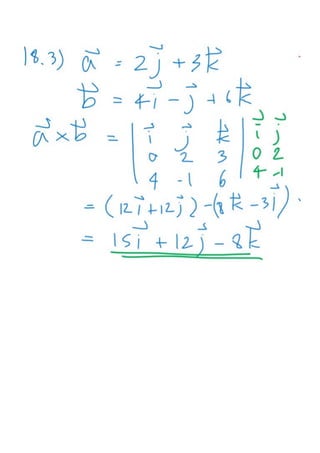 18.3) a⃗ = 2j⃗ + 3k⃗
b⃗ = 4i⃗ - j⃗ + 6k⃗
a⃗ × b⃗ = | i⃗ j⃗ k⃗ | i⃗ j⃗
0 2 3 | 0 2
4 -1 6 | 4 -1
= (12i⃗ + 12j⃗) - (8k⃗ - 3i⃗)
= 15i⃗ + 12j⃗ - 8k⃗